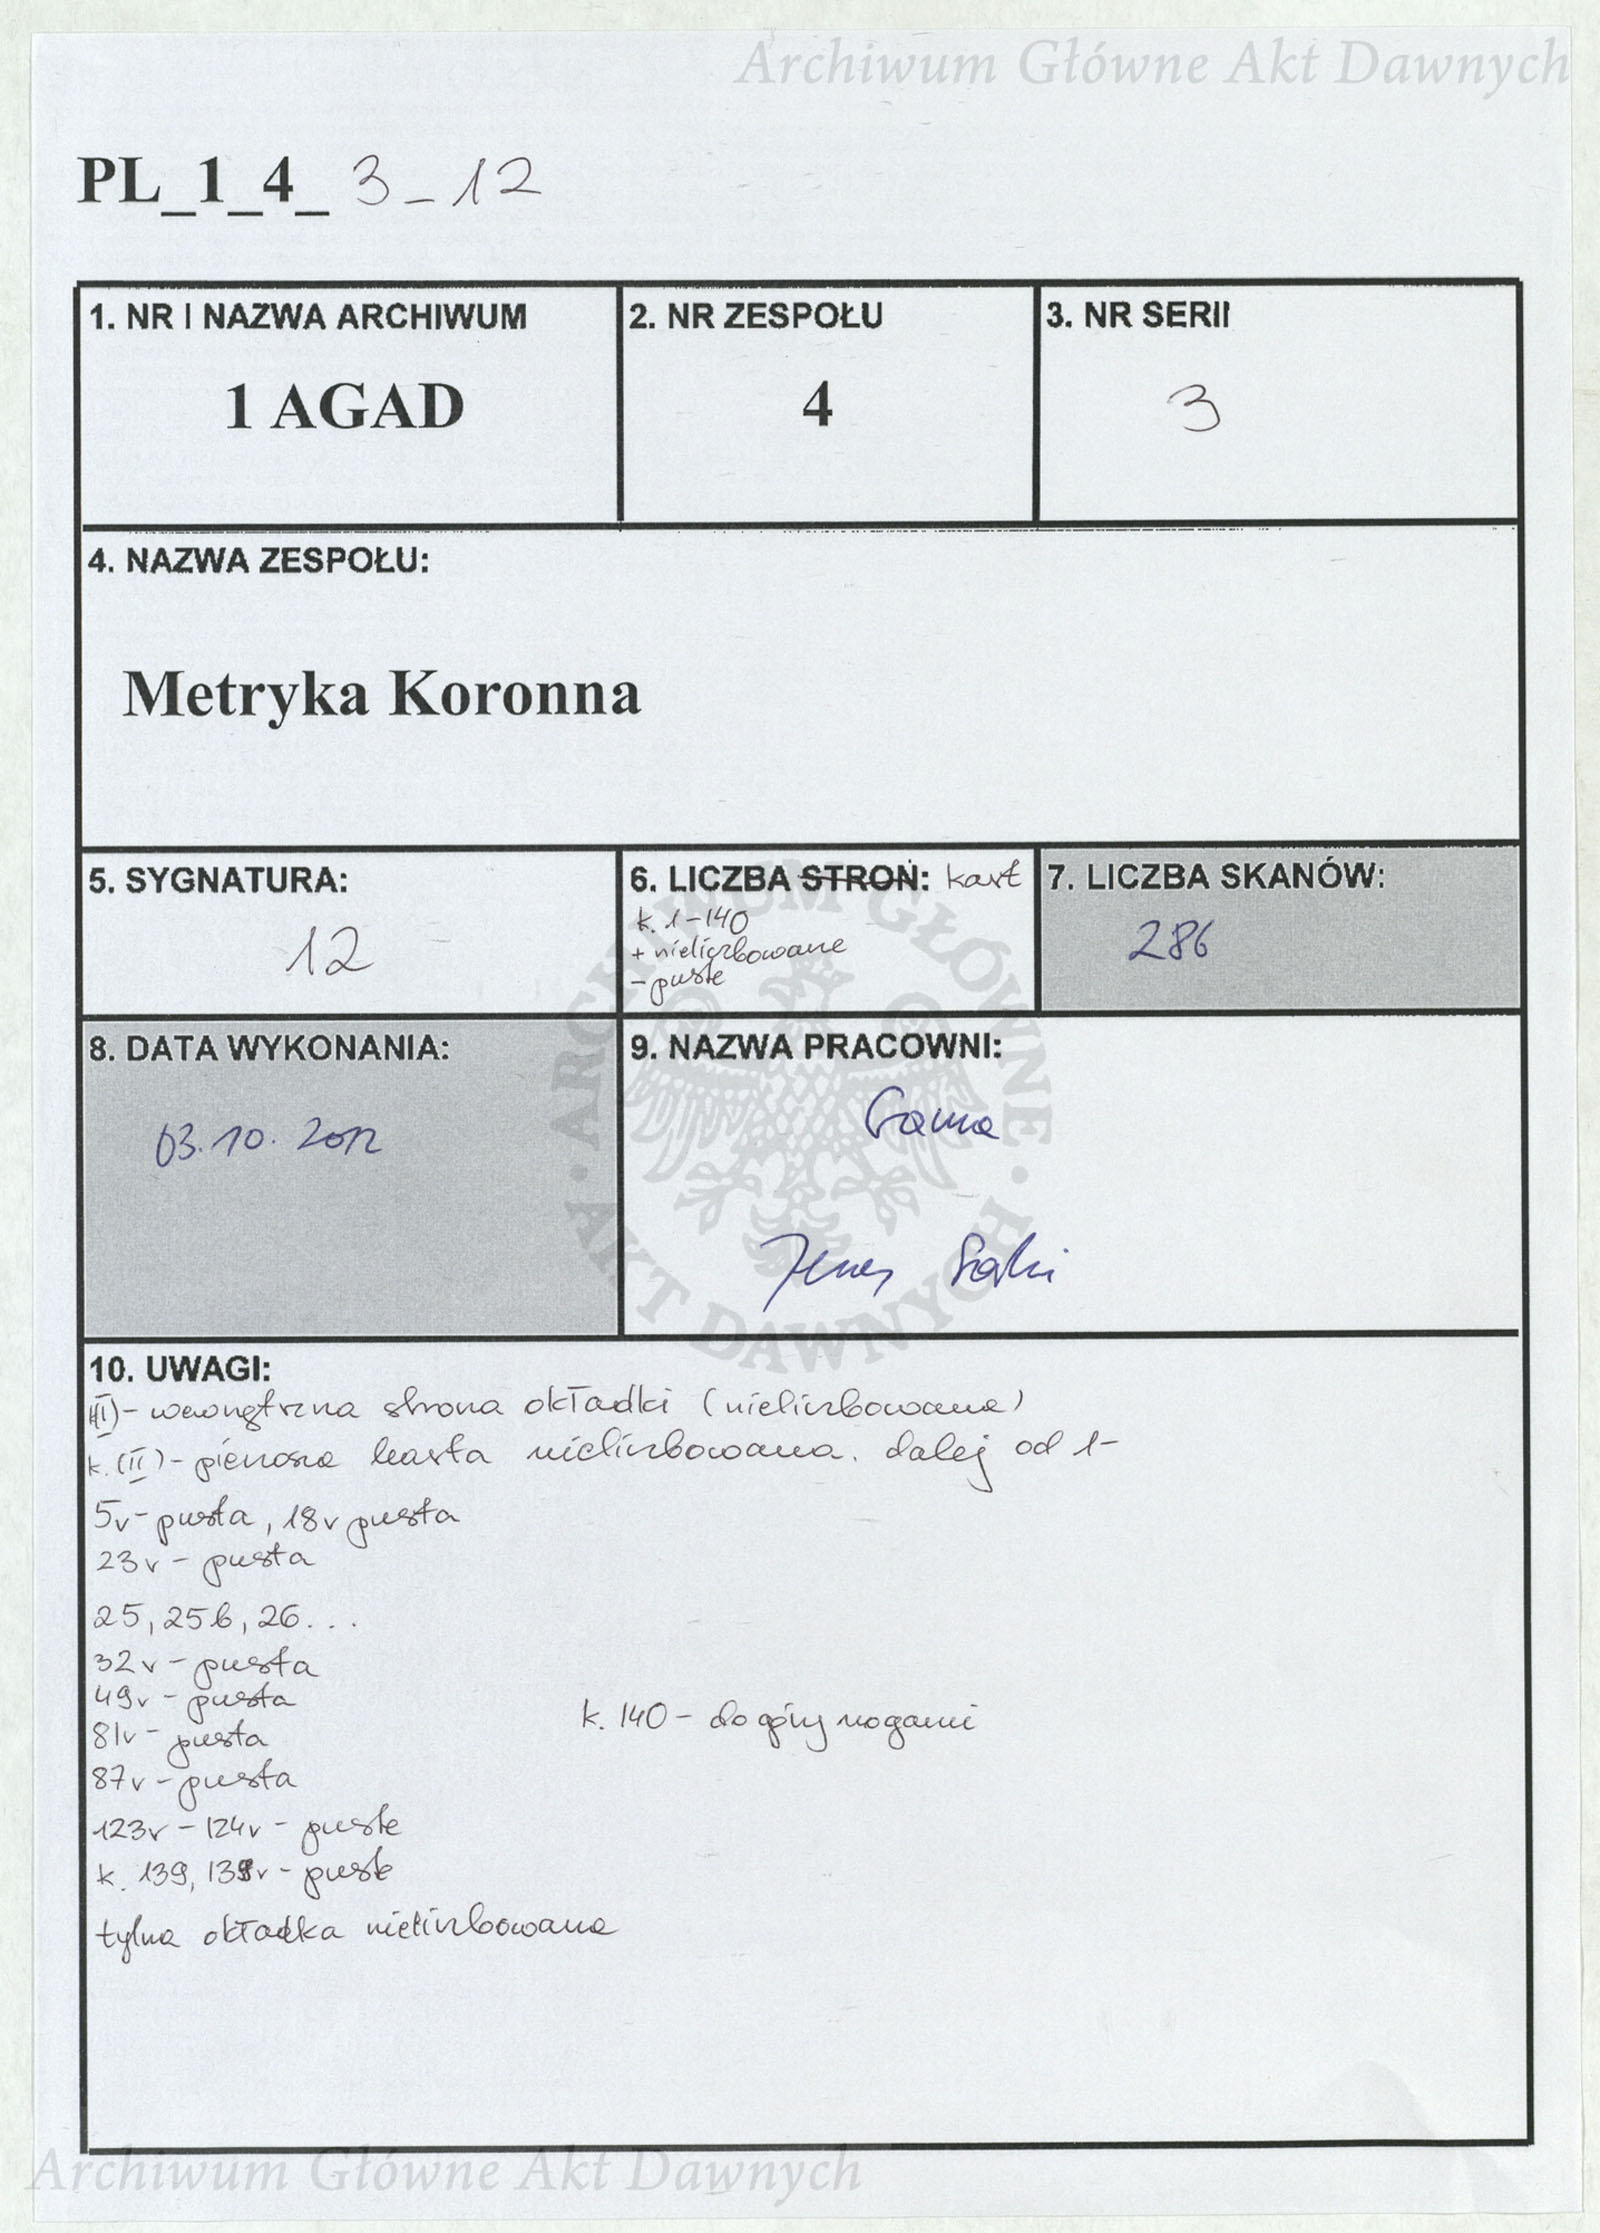 Archiwum Główne Akt Dawnych
PL_1_4_ 3_12
1. NR I NAZWA ARCHIWUM
1 AGAD
2. NR ZESPOŁU
4
3. NR SERII
3
4. NAZWA ZESPOŁU:
Metryka Koronna
5. SYGNATURA:
12
6. LICZBA STRON: kart
k. 1-140
+ nieliczbowane
- puste
7. LICZBA SKANÓW:
286
8. DATA WYKONANIA:
03.10.2012
9. NAZWA PRACOWNI:
10. UWAGI:
(I) - wewnętrzna strona okładki (nieliczbowana)
k. (II) - pierwsza karta nieliczbowana. dalej od 1-
5v - pusta, 18v pusta
23v - pusta
25, 25b, 26...
32v - pusta
49v - pusta
81v - pusta
87v - pusta
123v - 124v - puste
k. 139, 139v - puste
tylna okładka nieliczbowana
k. 140 - do góry nogami
ARCHIWUM GŁÓWNE · AKT DAWNYCH ·
Archiwum Główne Akt Dawnych